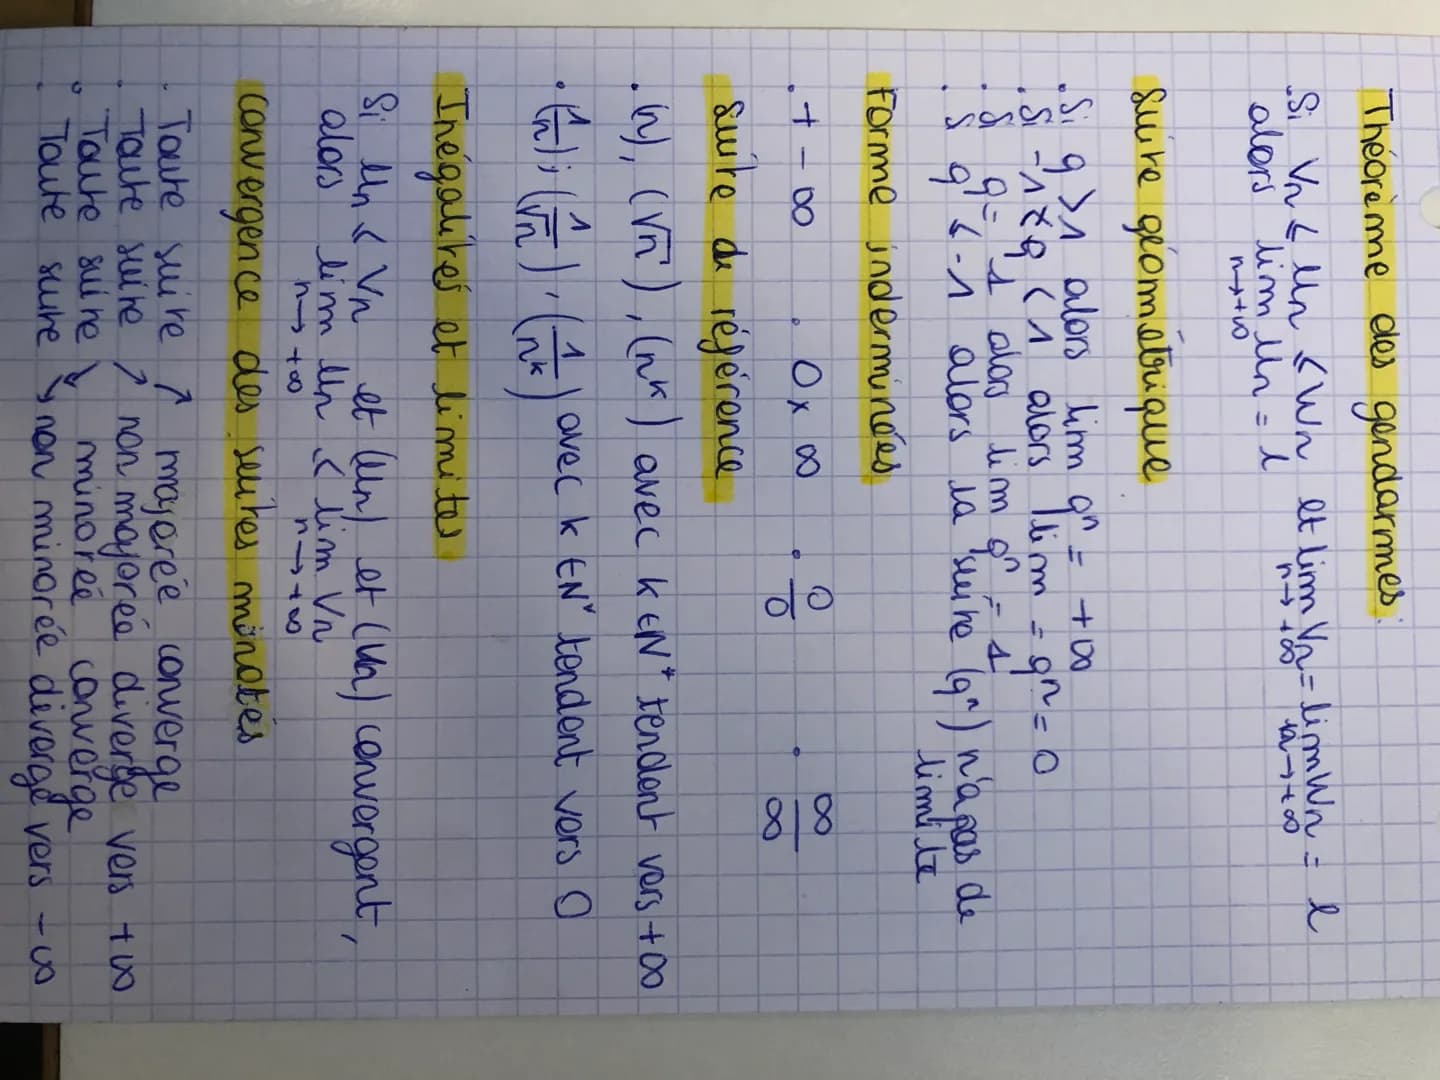 Théorème des gendarmes.
. Si Vn ≤ Un ≤ Wn et lim Vn = lim Wn = l
n→+∞ n→+∞
alors lim Un = l
n→+∞
Suite géométrique
. Si q > 1 alors lim qⁿ = +∞
. Si -1 < q < 1 alors lim = qⁿ = 0
. Si q = 1 alors lim qⁿ = 1
. Si q ≤ -1 alors la suite (qⁿ) n'a pas de
limite
Forme inderminées
. + - ∞ . 0 × ∞ . 0/0 . ∞/∞
Suite de référence
. (n), (√n), (nᵏ) avec k ∈ N* tendent vers +∞
. (1/n); (1/√n), (1/nᵏ) avec k ∈ N* tendent vers 0
Inégalités et limites
Si Un < Vn et (Un) et (Vn) convergent,
alors lim Un < lim Vn
n→+∞ n→+∞
Convergence des suites monotes
. Toute suite ↗ majorée converge
. Toute suite ↗ non majorée diverge vers +∞
. Toute suite ↘ minorée converge
. Toute suite ↘ non minorée diverge vers -∞